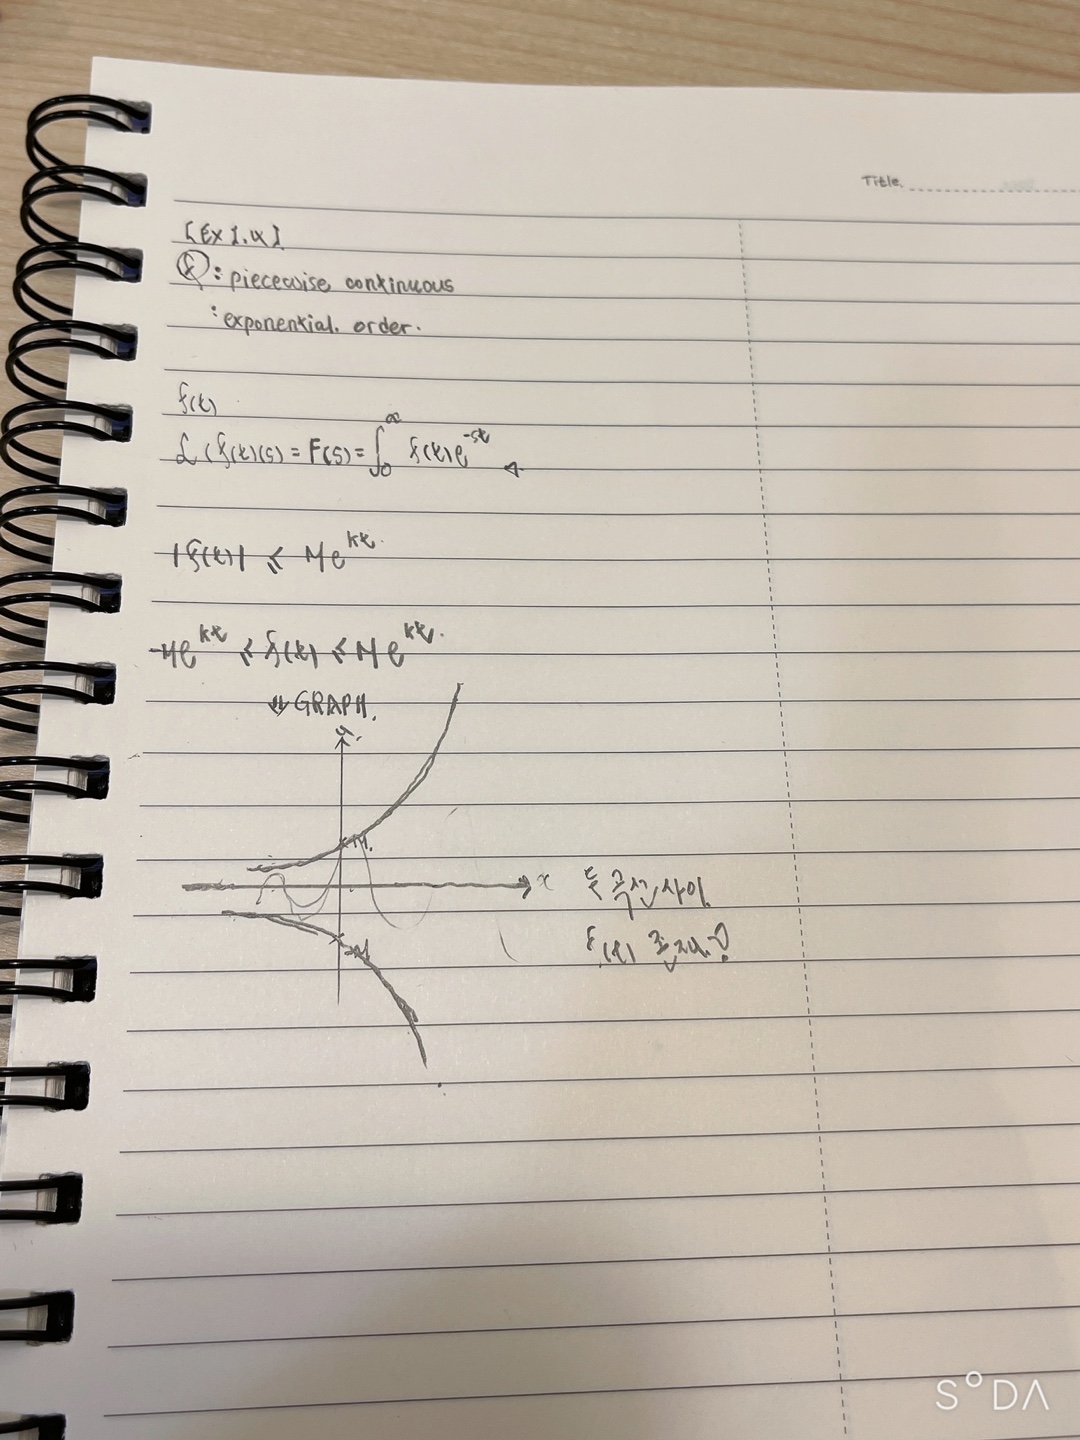 Title.
[Ex 1.4]
f : piecewise continuous
: exponential order.
f(t)
ℒ(f(t)(s) = F(s) = ∫₀^∞ f(t)e^-st
|f(t)| ≤ Me^kt.
-Me^kt ≤ f(t) ≤ Me^kt.
⇓ GRAPH.
M.
x 두 곡선 사이
-M f(t) 존재?
SODA